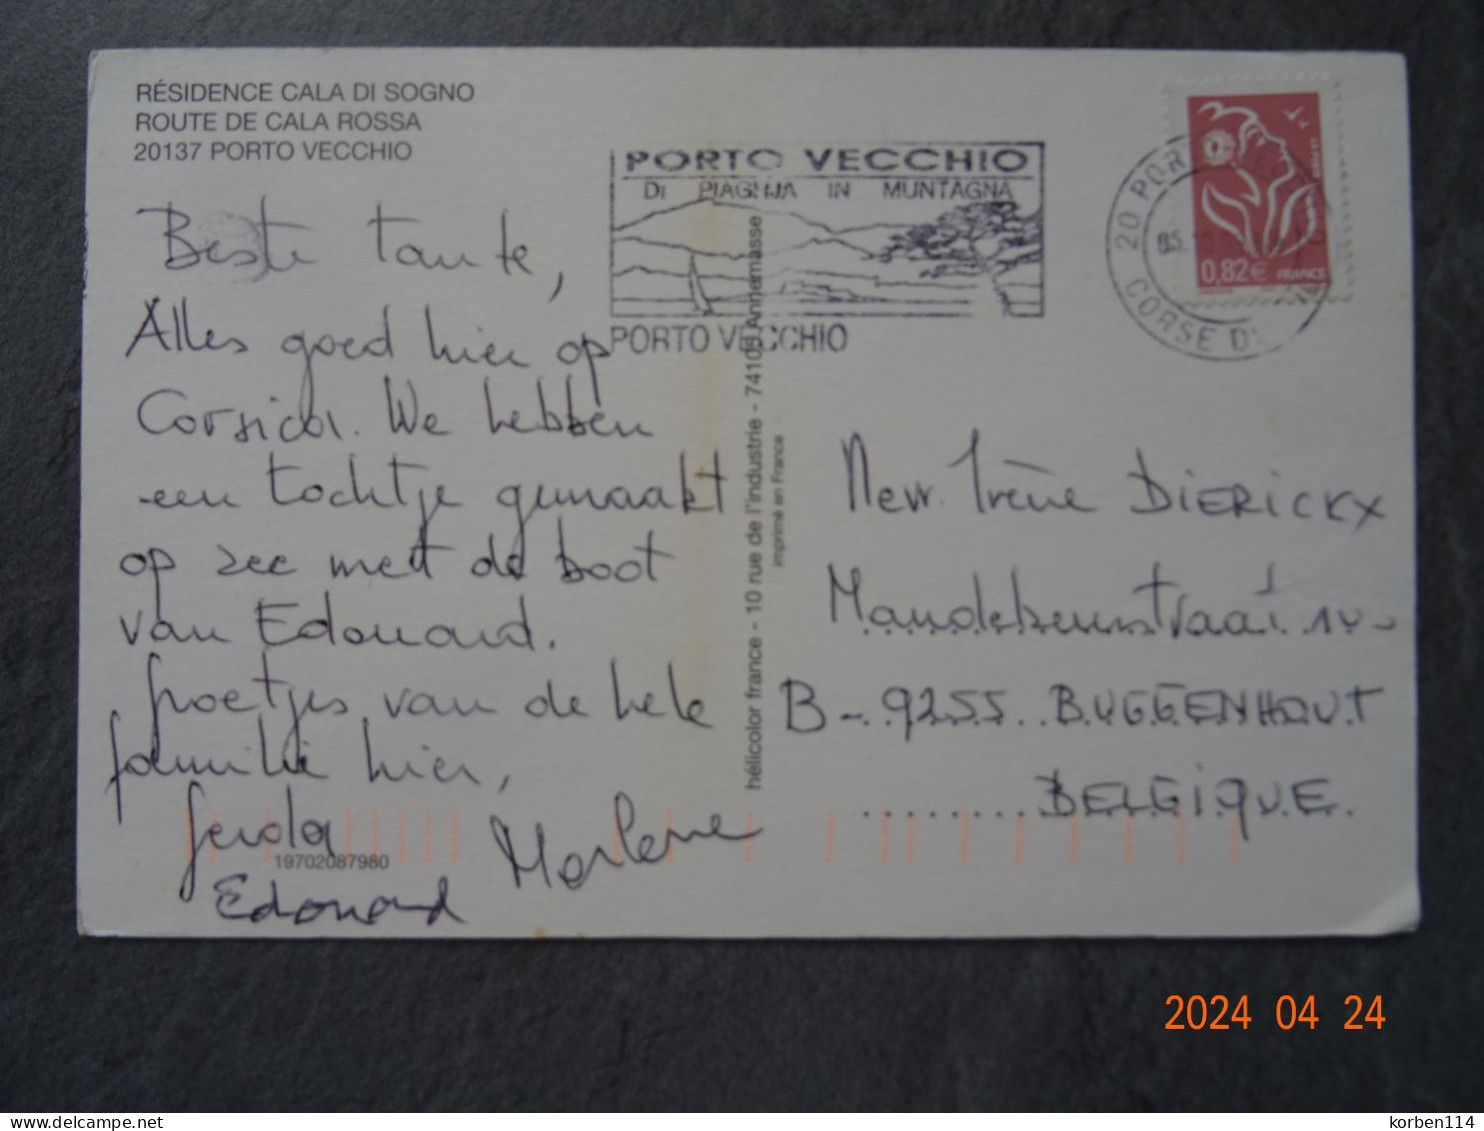 RÉSIDENCE CALA DI SOGNO
ROUTE DE CALA ROSSA
20137 PORTO VECCHIO
PORTO VECCHIO
DI PIAGHJA IN MUNTAGNA
PORTO VECCHIO
20 PORTO VECCHIO
CORSE DU
0,82€ FRANCE
LA POSTE
Beste tante,
Alles goed hier op
Corsica. We hebben
een tochtje gemaakt
op zee met de boot
van Edouard.
Groetjes van de hele
familie hier,
Gerda Marlene
Edouard
19702087980
hélicolor france - 10 rue de l'industrie - 74105 Annemasse
imprimé en France
Mevr. Irène DIERICKX
B-9255 BUGGENHOUT
BELGIQUE.
2024 04 24
korben114